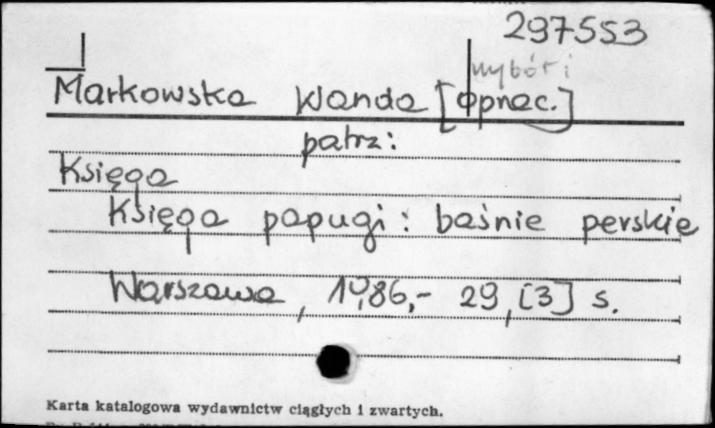 297553
wybór i
Markowska Wanda [oprac.]
patrz:
Księga
Księga papugi : baśnie perskie
Warszawa, 1986,- 29, [3] s.
Karta katalogowa wydawnictw ciągłych i zwartych.